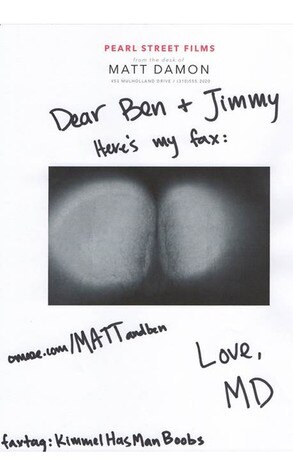 PEARL STREET FILMS
from the desk of
MATT DAMON
Dear Ben + Jimmy
Here's my fax:
omaze.com/MATTandben
Love,
MD
faxtag: KimmelHasManBoobs